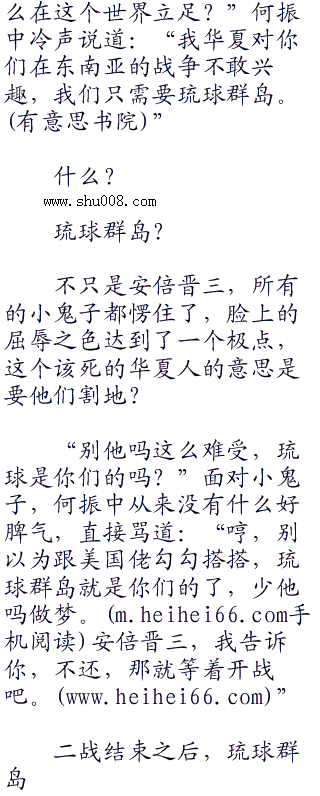 么在这个世界立足？”何振
中冷声说道：“我华夏对你
们在东南亚的战争不敢兴
趣，我们只需要琉球群岛。
(有意思书院)”
什么？
www.shu008.com
琉球群岛？
不只是安倍晋三，所有
的小鬼子都愣住了，脸上的
屈辱之色达到了一个极点，
这个该死的华夏人的意思是
要他们割地？
“别他吗这么难受，琉
球是你们的吗？”面对小鬼
子，何振中从来没有什么好
脾气，直接骂道：“哼，别
以为跟美国佬勾勾搭搭，琉
球群岛就是你们的了，少他
吗做梦。(m.heihei66.com手
机阅读)安倍晋三，我告诉
你，不还，那就等着开战
吧。(www.heihei66.com)”
二战结束之后，琉球群
岛